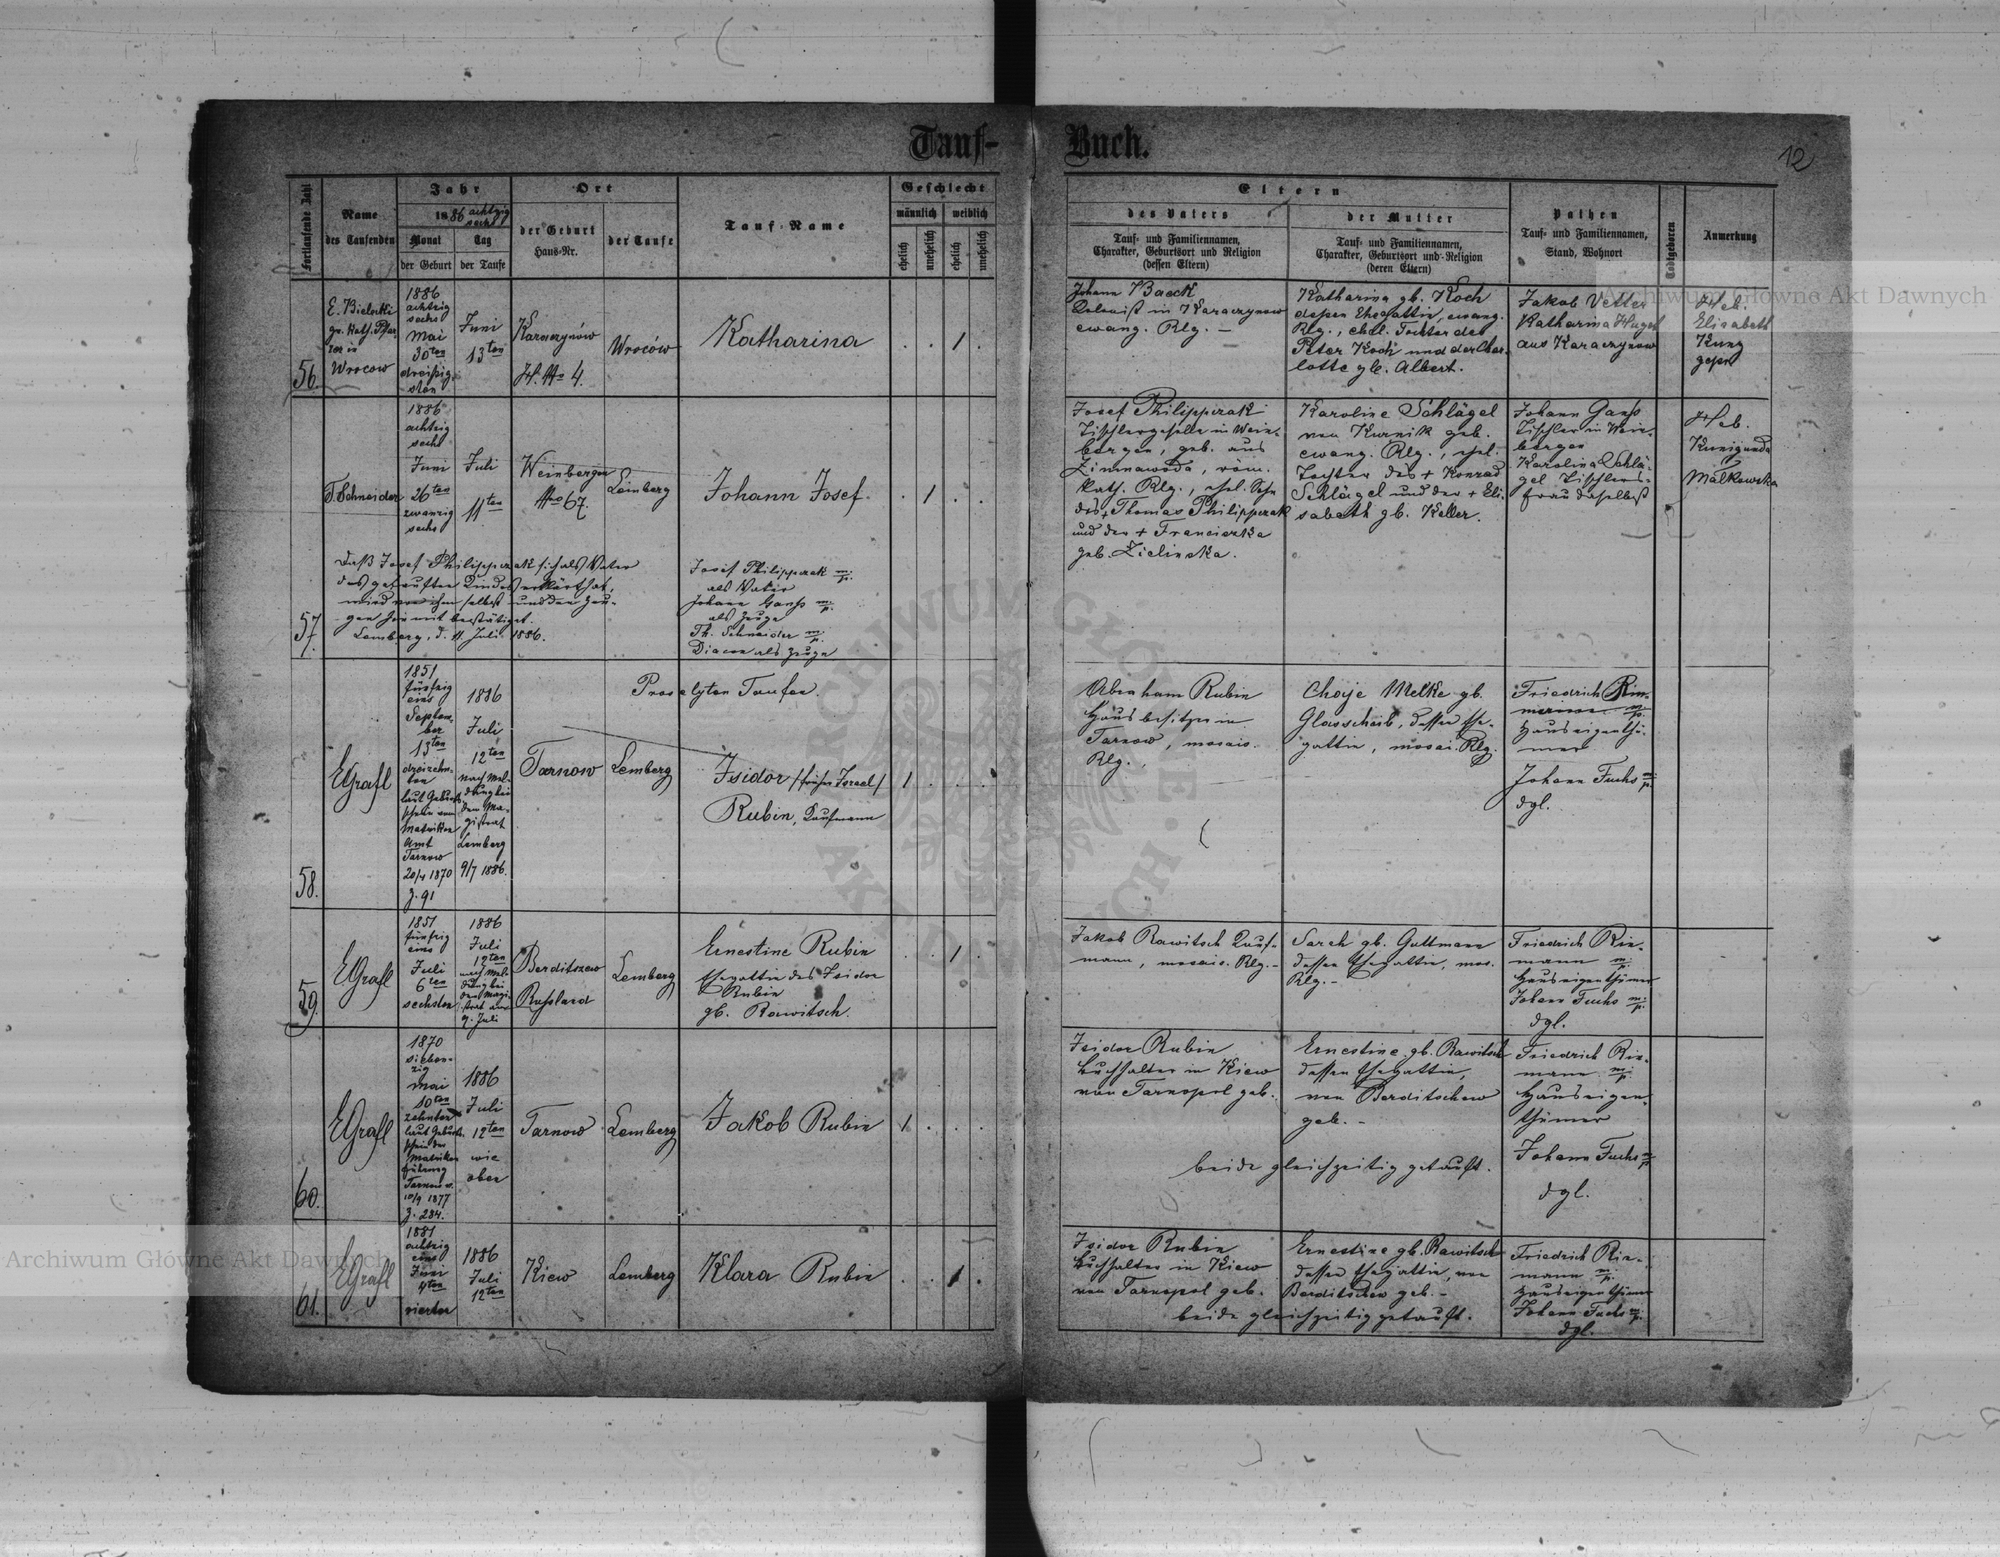 Tauf-
Buch.
12
Fortlaufende Zahl
Name
des Taufenden
Jahr
1886 achtzig
sechs
Monat
der Geburt
Tag
der Taufe
Ort
der Geburt
Haus-Nr.
der Taufe
Tauf-Name
Geschlecht
männlich
weiblich
ehelich
unehelich
ehelich
unehelich
Eltern
des Vaters
Tauf- und Familiennamen,
Charakter, Geburtsort und Religion
(dessen Eltern)
der Mutter
Tauf- und Familiennamen,
Charakter, Geburtsort und Religion
(deren Eltern)
Pathen
Tauf- und Familiennamen,
Stand, Wohnort
Todtgeboren
Anmerkung
56.
E. Bielecki
gr. kath. Pfar
rer in
Wrocow
1886
achtzig
sechs
Mai
30ten
dreißig
sten
Juni
13ten
Karaczynów
H. No 4.
Wroców
Katharina
1
Johann Baeck
Colonist in Karaczynow
ewang. Rlg. –
Katharina gb. Koch
dessen Ehegattin, ewang.
Rlg., ehel. Tochter des
Peter Koch und der Char-
lotte gb. Albert.
Jakob Vetter
Katharina
aus Karaczynow
Heb.
Elisabeth
Kunz
gepr.
57.
T. Schneider
1886
achtzig
sechs
Juni
26ten
zwanzig
sechs
Juli
11ten
Weinbergen
No 67.
Lemberg
Johann Josef.
1
Josef Philippczak
Tischlergeselle in Wein-
bergen, geb. aus
Zimnawoda, röm.
kath. Rlg., ehel. Sohn
des + Thomas Philippczak
und der + Franciszka
geb. Zielinska.
Karoline Schlägel
von Kurnik geb.
ewang. Rlg., ehel.
Tochter des + Konrad
Schlägel und der + Eli-
sabeth gb. Keller.
Johann Ganß
Tischler in Wein-
bergen
Karolina Schlä-
gel Tischlers-
frau daselbst
Heb.
Kunigunda
Malkowska
Daß Josef Philippczak sich als Vater
des getauften Kindes erklärt hat,
wird von ihm selbst und den Zeu-
gen hiemit bestätiget.
Lemberg, d. 11 Juli 1886.
Josef Philippczak m/p.
als Vater
Johann Ganß m/p.
als Zeuge
Th. Schneider m/p.
Diacon als Zeuge
Proselyten Taufen.
58.
EGrafl
1851
fünfzig
eins
Septem-
ber
13ten
dreizehn-
ten
laut Geburts
schein vom
Matriken
Amt
Tarnow
20/4 1870
Z. 91
1886
Juli
12ten
nach Mel-
dung bei
dem Ma-
gistrat
Lemberg
9/7 1886.
Tarnow
Lemberg
Isidor /früher Israel/
Rubin, Kaufmann
1
Abraham Rubin
Hausbesitzer in
Tarnow, mosais.
Rlg.,
Choje Melke gb.
Glasscheib, dessen Ehe-
gattin, mosai. Rlg.
Friedrich Rin-
mann m/p.
Hauseigenthü-
mer
Johann Fuchs m/p.
dgl.
59.
EGrafl
1851
fünfzig
eins
Juli
6ten
sechsten
1886
Juli
12ten
nach Mel-
dung bei
dem Magi-
strat am
9. Juli
Berditszew
Russland
Lemberg
Ernestine Rubin
Ehegattin des Isidor
Rubin
gb. Rawitsch.
1
Jakob Rawitsch Kauf-
mann, mosais. Rlg. –
Sarah gb. Guttmann
dessen Ehegattin, mos.
Rlg. –
Friedrich Rin-
mann m/p.
Hauseigenthümer
Johann Fuchs m/p.
dgl.
60.
EGrafl
1870
sieben-
zig
Mai
10ten
zehnter
laut Geburts
schein der
Matriken
führung
Tarnow
10/9 1877
Z. 284.
1886
Juli
12ten
wie
oben
Tarnow
Lemberg
Jakob Rubin
1
Isidor Rubin
Buchhalter in Kiew
von Tarnopol geb.
Ernestine gb. Rawitsch
dessen Ehegattin,
von Berditschew
geb. –
beide gleichzeitig getauft.
Friedrich Rin-
mann m/p.
Hauseigen-
thümer
Johann Fuchs m/p.
dgl.
61.
EGrafl
1881
achtzig
eins
Juni
4ten
vierter
1886
Juli
12ten
Kiew
Lemberg
Klara Rubin
1
Isidor Rubin
Buchhalter in Kiew
von Tarnopol geb.
Ernestine gb. Rawitsch
dessen Ehegattin, von
Berditschew geb. –
beide gleichzeitig getauft.
Friedrich Rin-
mann m/p.
Hauseigenthümer
Johann Fuchs m/p.
dgl.
Archiwum Główne Akt Dawnych
Archiwum Główne Akt Dawnych
ARCHIWUM GŁÓWNE AKT DAWNYCH